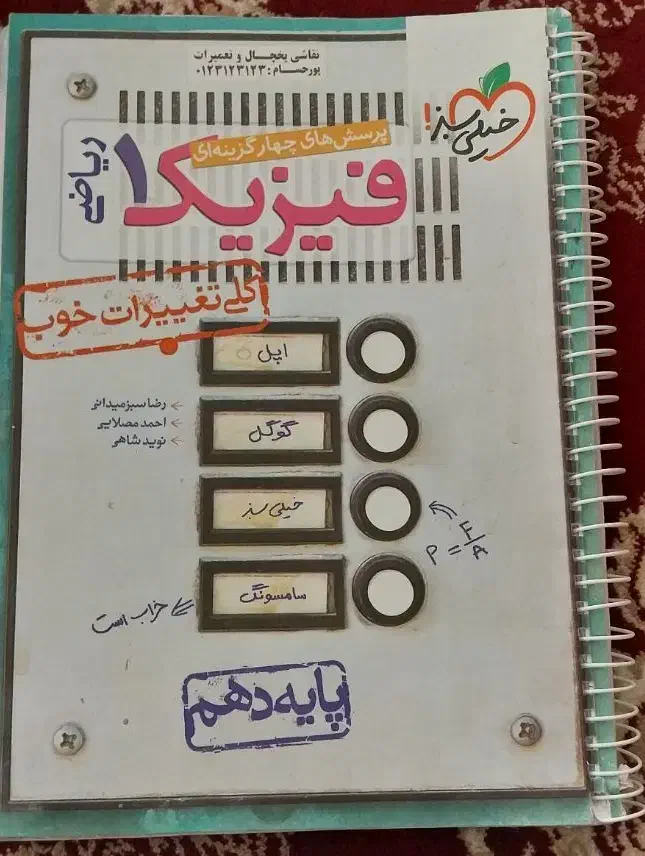 نقاشی یخچال و تعمیرات
پورحسام: ۰۱۲۳۱۲۳۱۲۳
خیلی سبز!
پرسش‌های چهارگزینه‌ای
فیزیک ۱
ریاضی
کلی تغییرات خوب
اپل
رضا سبزمیدانی
احمد مصلایی
نوید شاهی
گوگل
خیلی سبز
P = F/A
سامسونگ
خراب است
پایه دهم